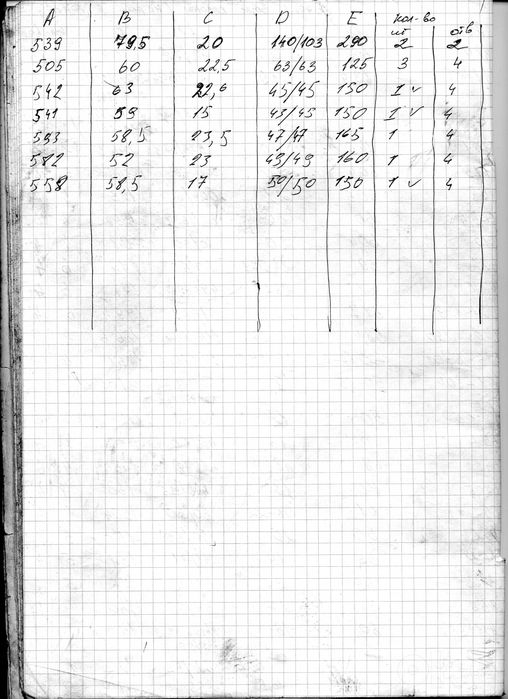 A B C D E кол-во
шт отв
539 79,5 20 140/103 290 2 2
505 60 22,5 63/63 125 3 4
542 63 22,6 45/45 150 1 ✓ 4
541 59 15 43/45 150 1 ✓ 4
593 58,5 23,5 47/47 165 1 4
582 52 23 49/49 160 1 4
558 58,5 17 50/50 150 1 ✓ 4